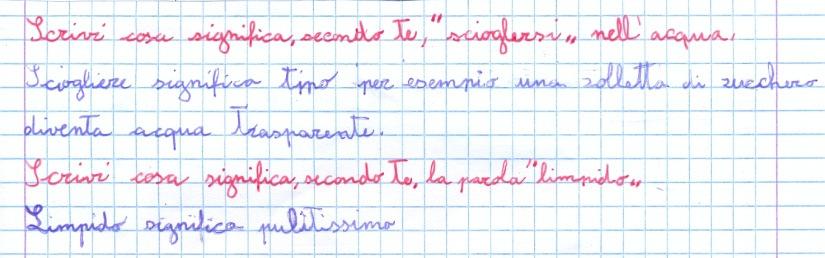 Scrivi cosa significa, secondo te, "sciogliersi„ nell'acqua.
Sciogliere significa tipo per esempio una zolletta di zucchero
diventa acqua trasparente.
Scrivi cosa significa, secondo te, la parola "limpido„
Limpido significa pulitissimo